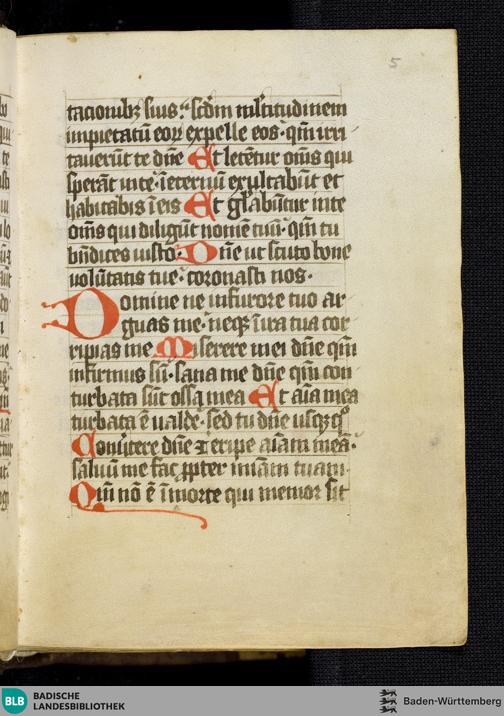 5
tacionibꝫ suis· scdm mltitudinem
impietatū eoꝝ expelle eos· qm̄ irri
tauerūt te dn̄e Et letent᷑ om̄s qui
sperāt in te· ī eternū exultabūt et
habitabis ī eis Et gl̄abūtur in te
om̄s qui diligūt nomē tuū· qm̄ tu
bn̄dices iusto· Dn̄e ut scuto bone
volūtatis tue· coronasti nos·
Domine ne in furore tuo ar
guas me· neqꝫ ī ira tua cor
ripias me Miserere mei dn̄e qm̄
infirmus sū· sana me dn̄e qm̄ con
turbata sūt ossa mea Et aīa mea
turbata ē valde· sed tu dn̄e usqꝫqͦ
Conūtere dn̄e ⁊ eripe aīam meā·
saluū me fac ꝓpter mīam tuam·
Qm̄ nō ē ī morte qui memor sit
BLB
BADISCHE
LANDESBIBLIOTHEK
Baden-Württemberg